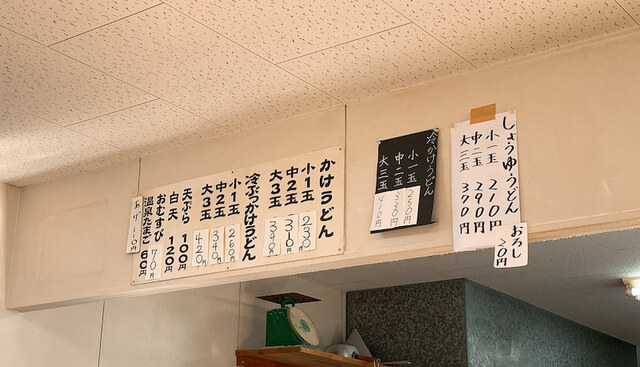 しょうゆうどん
小一玉 210円
中二玉 290円
大三玉 370円
おろし
20円
冷かけうどん
小一玉 250円
中二玉 330円
大三玉 410円
かけうどん
小1玉 230
中2玉 310
大3玉 390
冷ぶっかけうどん
小1玉 260
中2玉 340
大3玉 420
天ぷら 100円
白天 120円
おむすび 70円
温泉たまご 60円